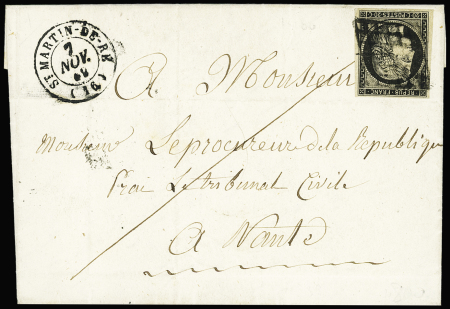 ST MARTIN-DE-RÉ
7
NOV.
49
(16)
REPUB. FRANC.
A Monsieur
Monsieur Le procureur de la Republique
Prai Le tribunat Civile
A Nante